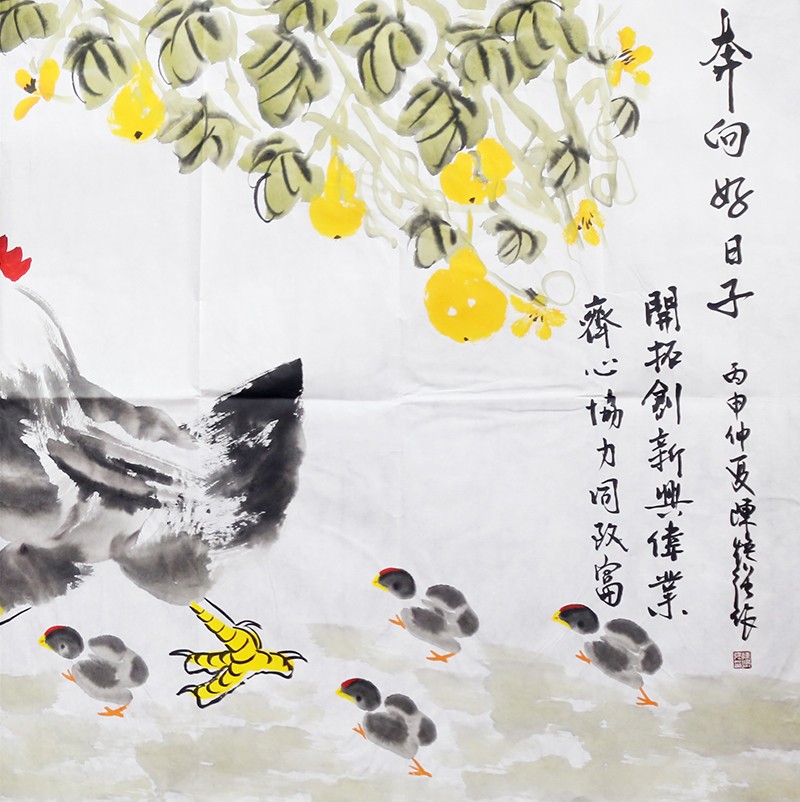 奔向好日子
丙申仲夏陳
開拓創新興偉業
齊心協力同致富